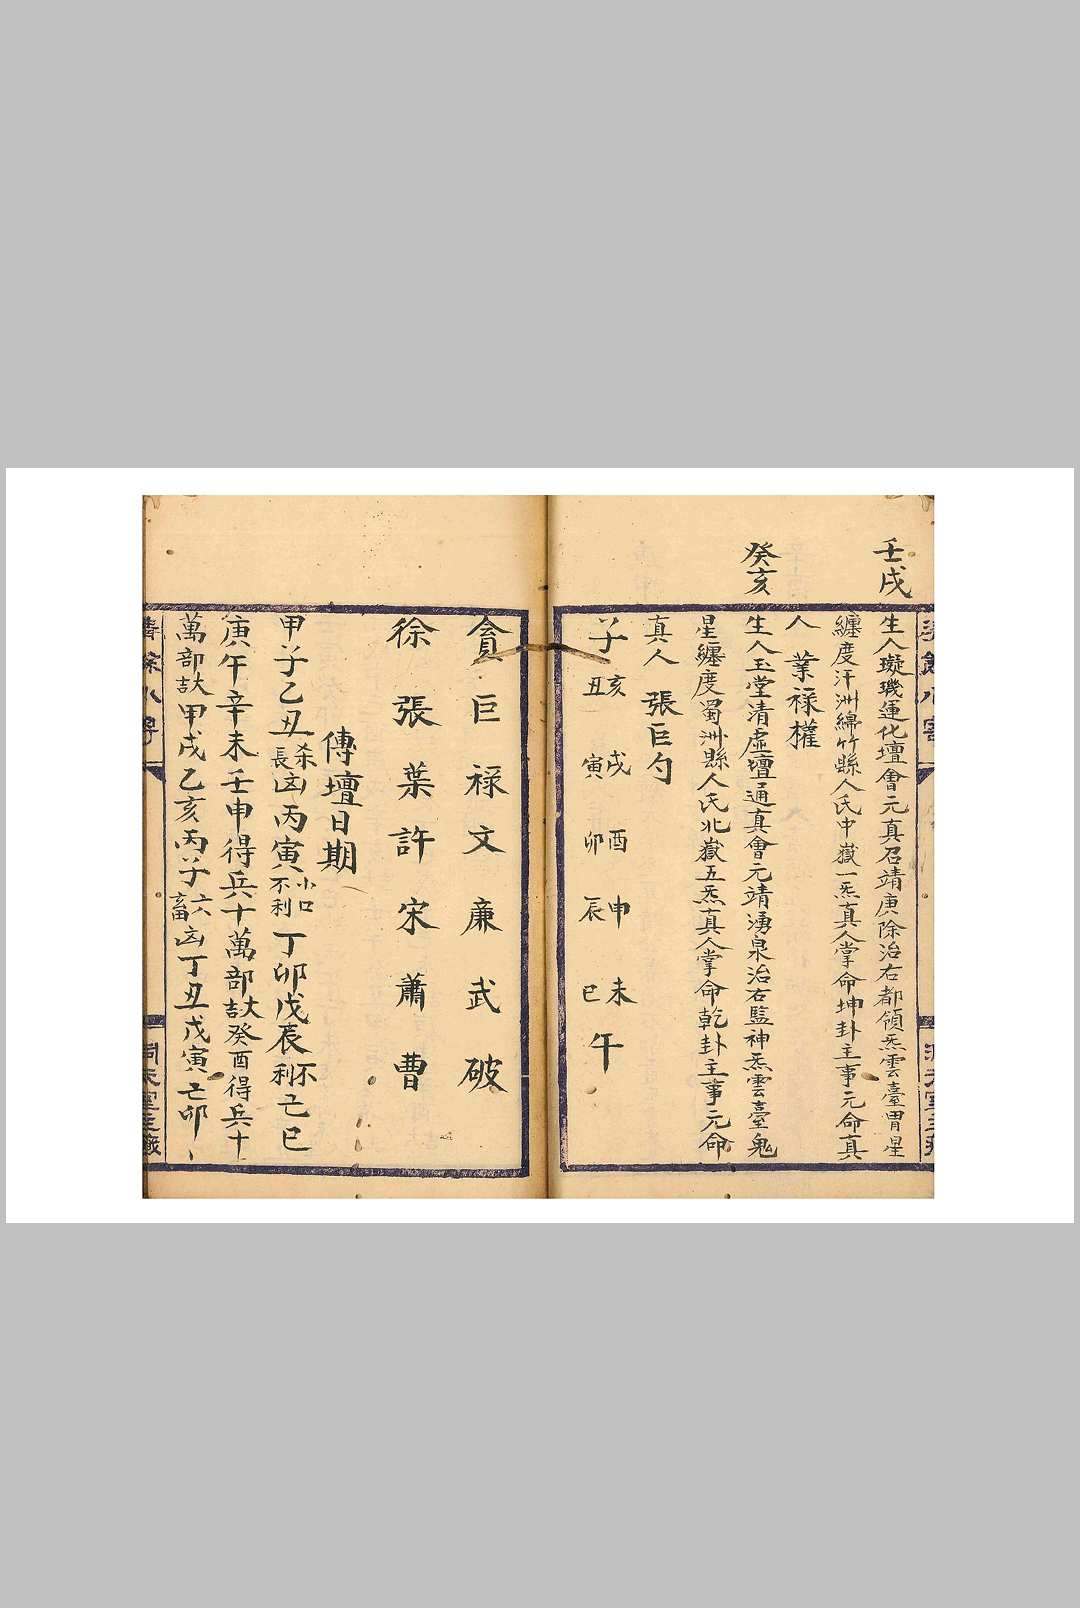 壬戌
生人璇璣運化壇會元真召靖庚除治右都領炁雲臺胃星
纏度汗洲綿竹縣人氏中嶽一炁真人掌命坤卦主事元命真
人 葉祿權
癸亥
生人玉堂清虛壇通真會元靖湧泉治右監神炁雲臺鬼
星纏度蜀洲縣人氏北嶽五炁真人掌命乾卦主事元命
真人 張巨勺
子 亥 戌 酉 申 未 午
丑 寅 卯 辰 巳
貪 巨 祿 文 廉 武 破
徐 張 葉 許 宋 蕭 曹
傳壇日期
甲子乙丑杀長凶丙寅小口不利丁卯戊辰不利己巳
庚午辛未壬申得兵十萬部大吉癸酉得兵十
萬部大吉甲戌乙亥丙子六畜凶丁丑戊寅己卯